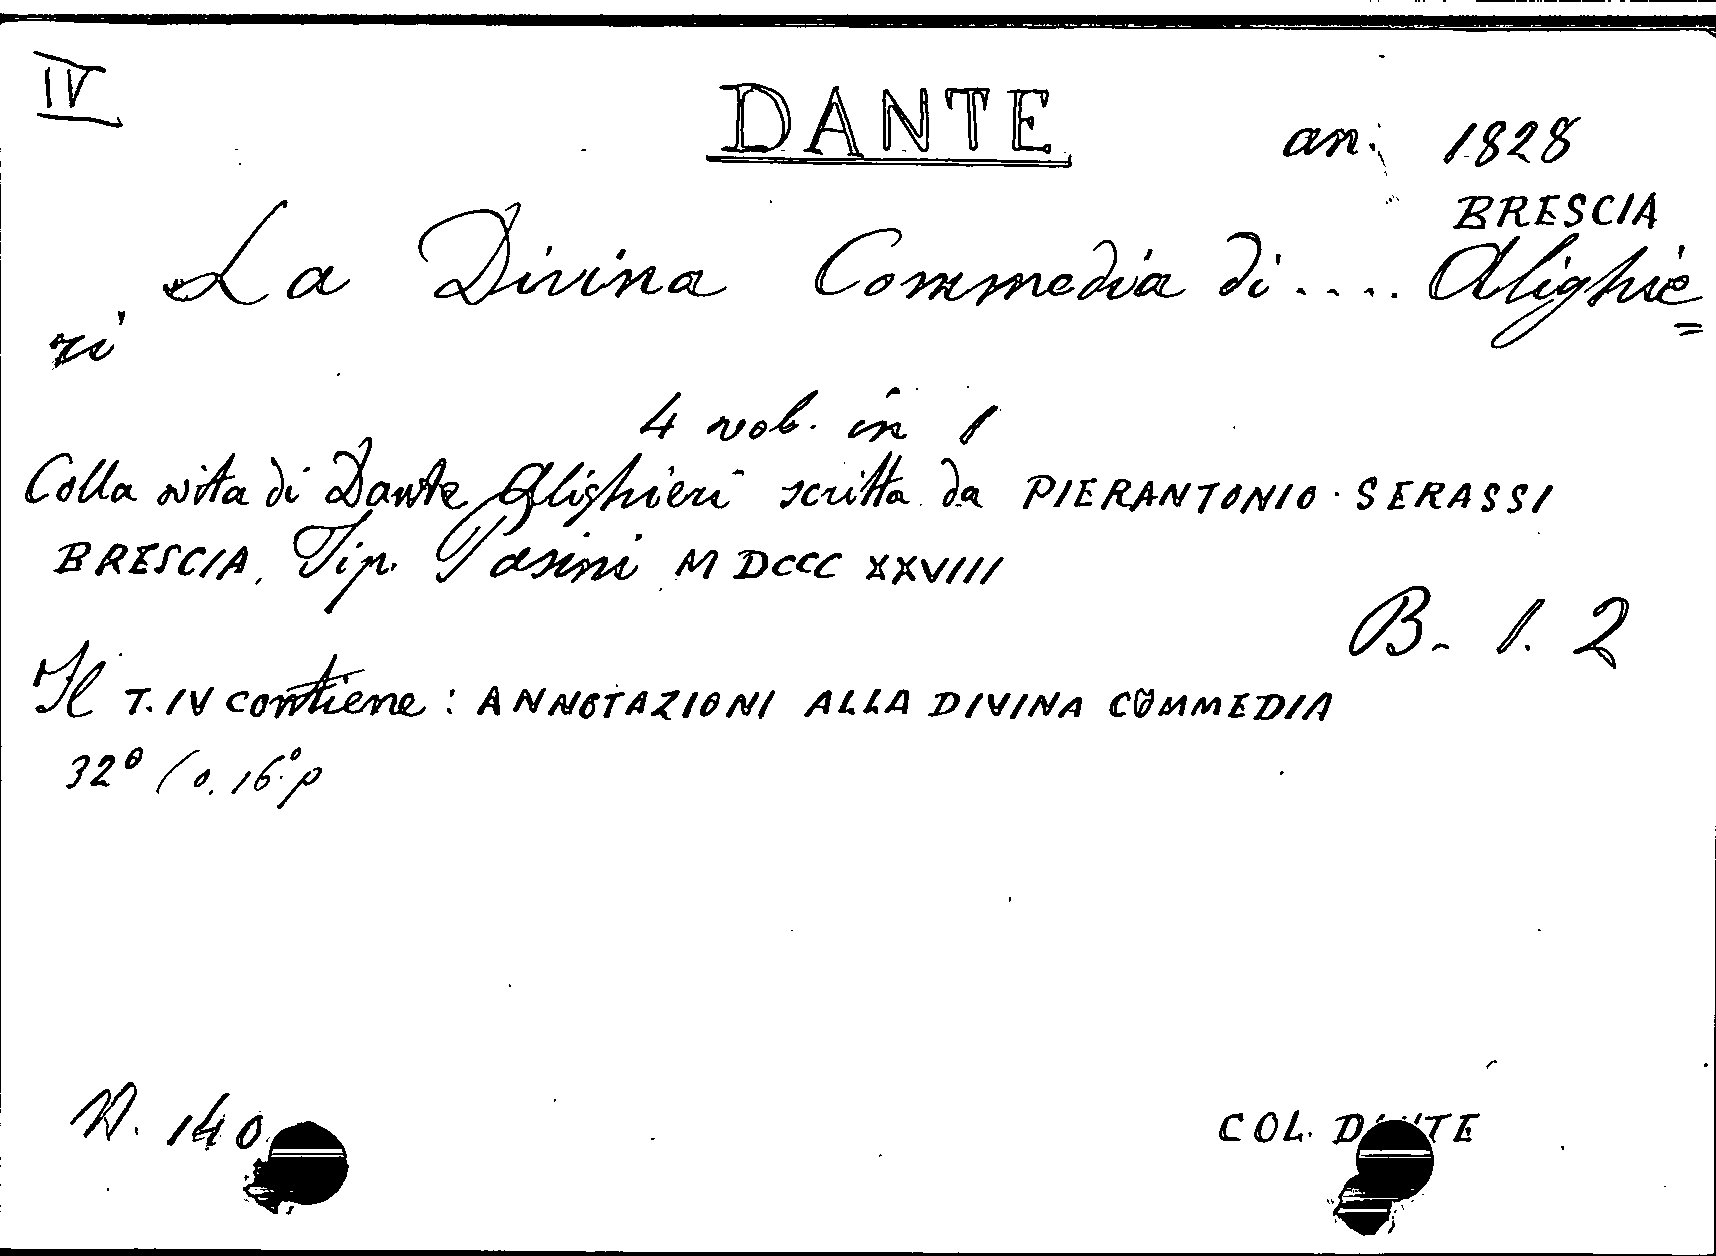 IV
DANTE
an. 1828
BRESCIA
La Divina Commedia di .... Alighie=
ri
4 vol. in 1
Colla vita di Dante Alighieri scritta da PIERANTONIO SERASSI
BRESCIA, Tip. Pasini MDCCCXXVIII
B. 1. 2
Il T. IV contiene: ANNOTAZIONI ALLA DIVINA COMMEDIA
32° (o. 16° p
N. 140
COL. DANTE